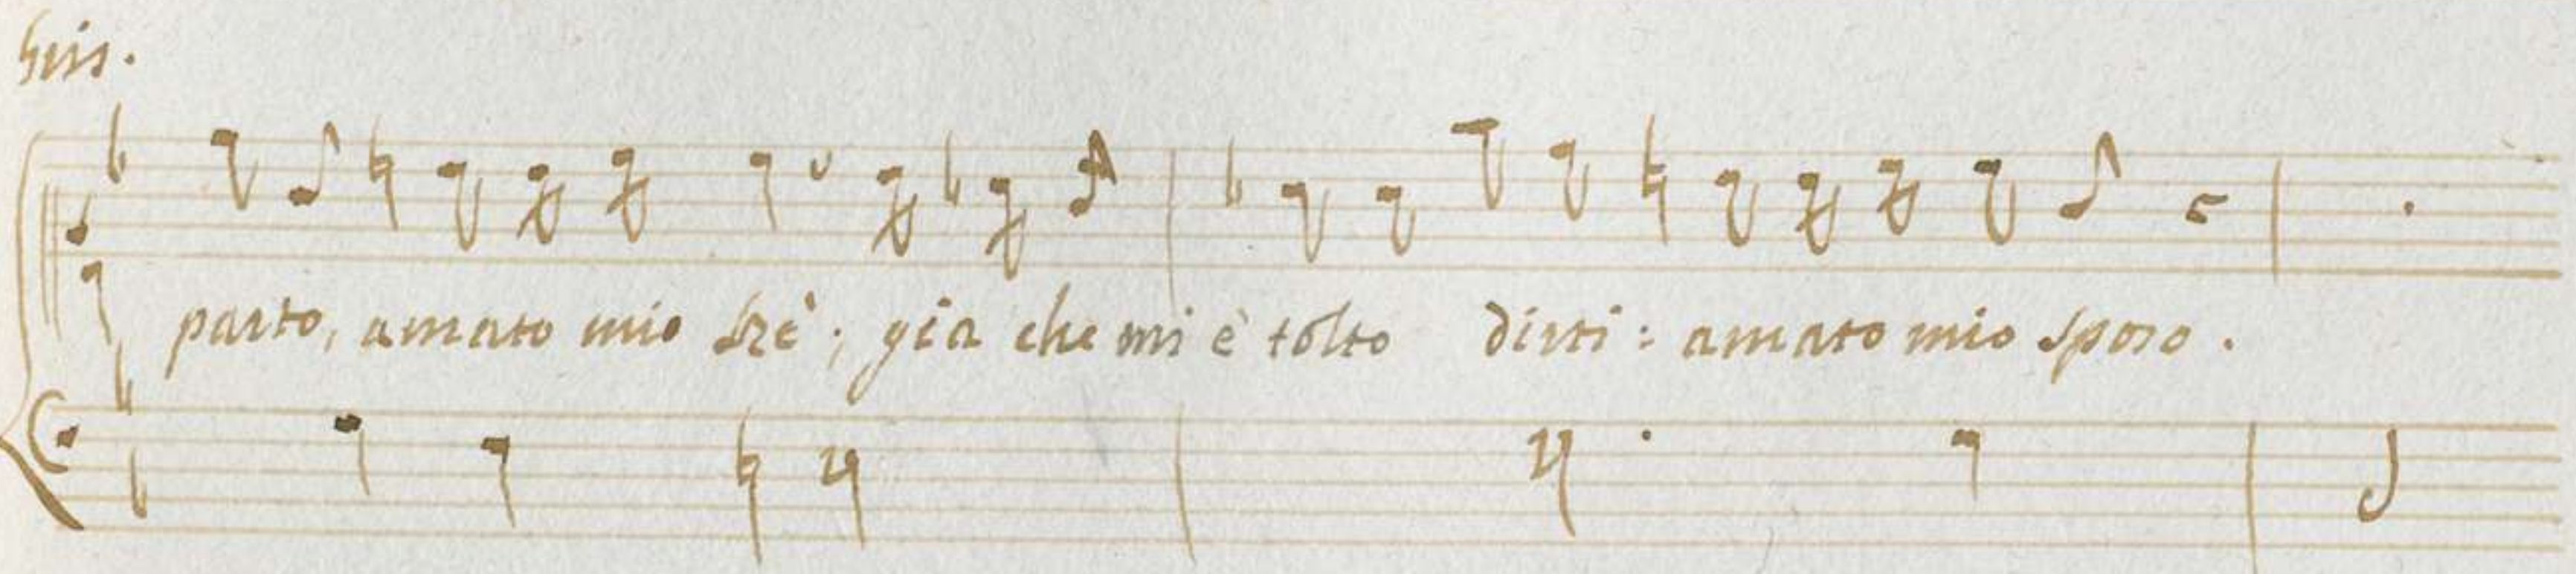 parto, amato mio Rè; già che mi è tolto dirti: amato mio sposo.